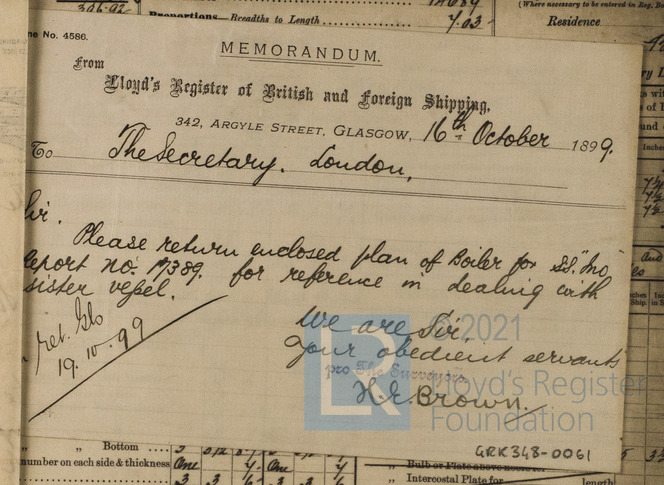 326.92
Proportions—Breadths to Length
7.03
(Where necessary to be entered in Reg. B
Residence
ne No. 4586.
MEMORANDUM.
From
Lloyd's Register of British and Foreign Shipping,
342, ARGYLE STREET, GLASGOW, 16th October 1899.
To The Secretary. London,
Sir.
Please return enclosed plan of Boiler for SS. "Ino"
eport no. 17389. for reference in dealing with
sister vessel.
ret. Glo
19.10.99
We are Sir.
your obedient servants
pro The Surveyors
H.R. Brown.
© 2021
Lloyd's Register
Foundation
LR
GRK348-0061
" " Bottom
number on each side & thickness One One
" Bulb or Plate above
" Intercostal Plate for length